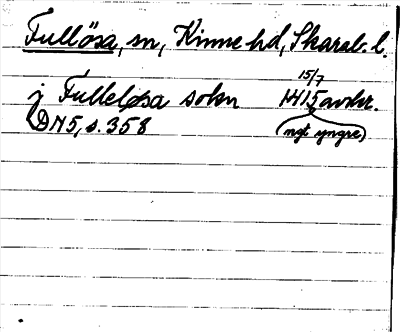 Fullösa, sn, Kinne hd, Skarab. l.
15/7
j Fulleløsa sokn 1415 avskr.
DN5, s. 358 (ngt yngre)